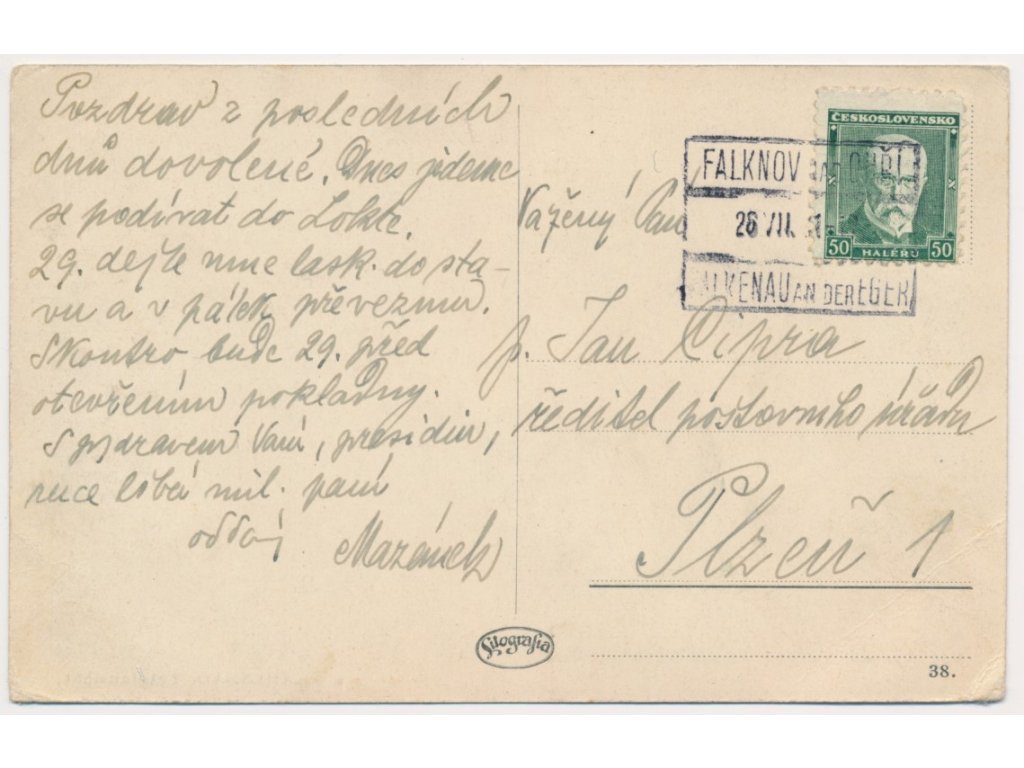 Pozdrav z posledních
dnů dovolené. Dnes jedeme
se podívat do Lokte.
29. dejte mne lask. do sta-
vu a v pátek převezmu.
Skontro bude 29. před
otevřením pokladny.
S pozdravem Vám, presidiu,
ruce líbá mil. paní
oddaný
Mazánek
ČESKOSLOVENSKO
50 HALÉŘŮ 50
FALKNOV NAD OHŘÍ
26 VII.
FALKENAU AN DER EGER
Vážený Pan
p. Jan Cipra
ředitel poštovního úřadu
Plzeň 1
Fotografia
38.